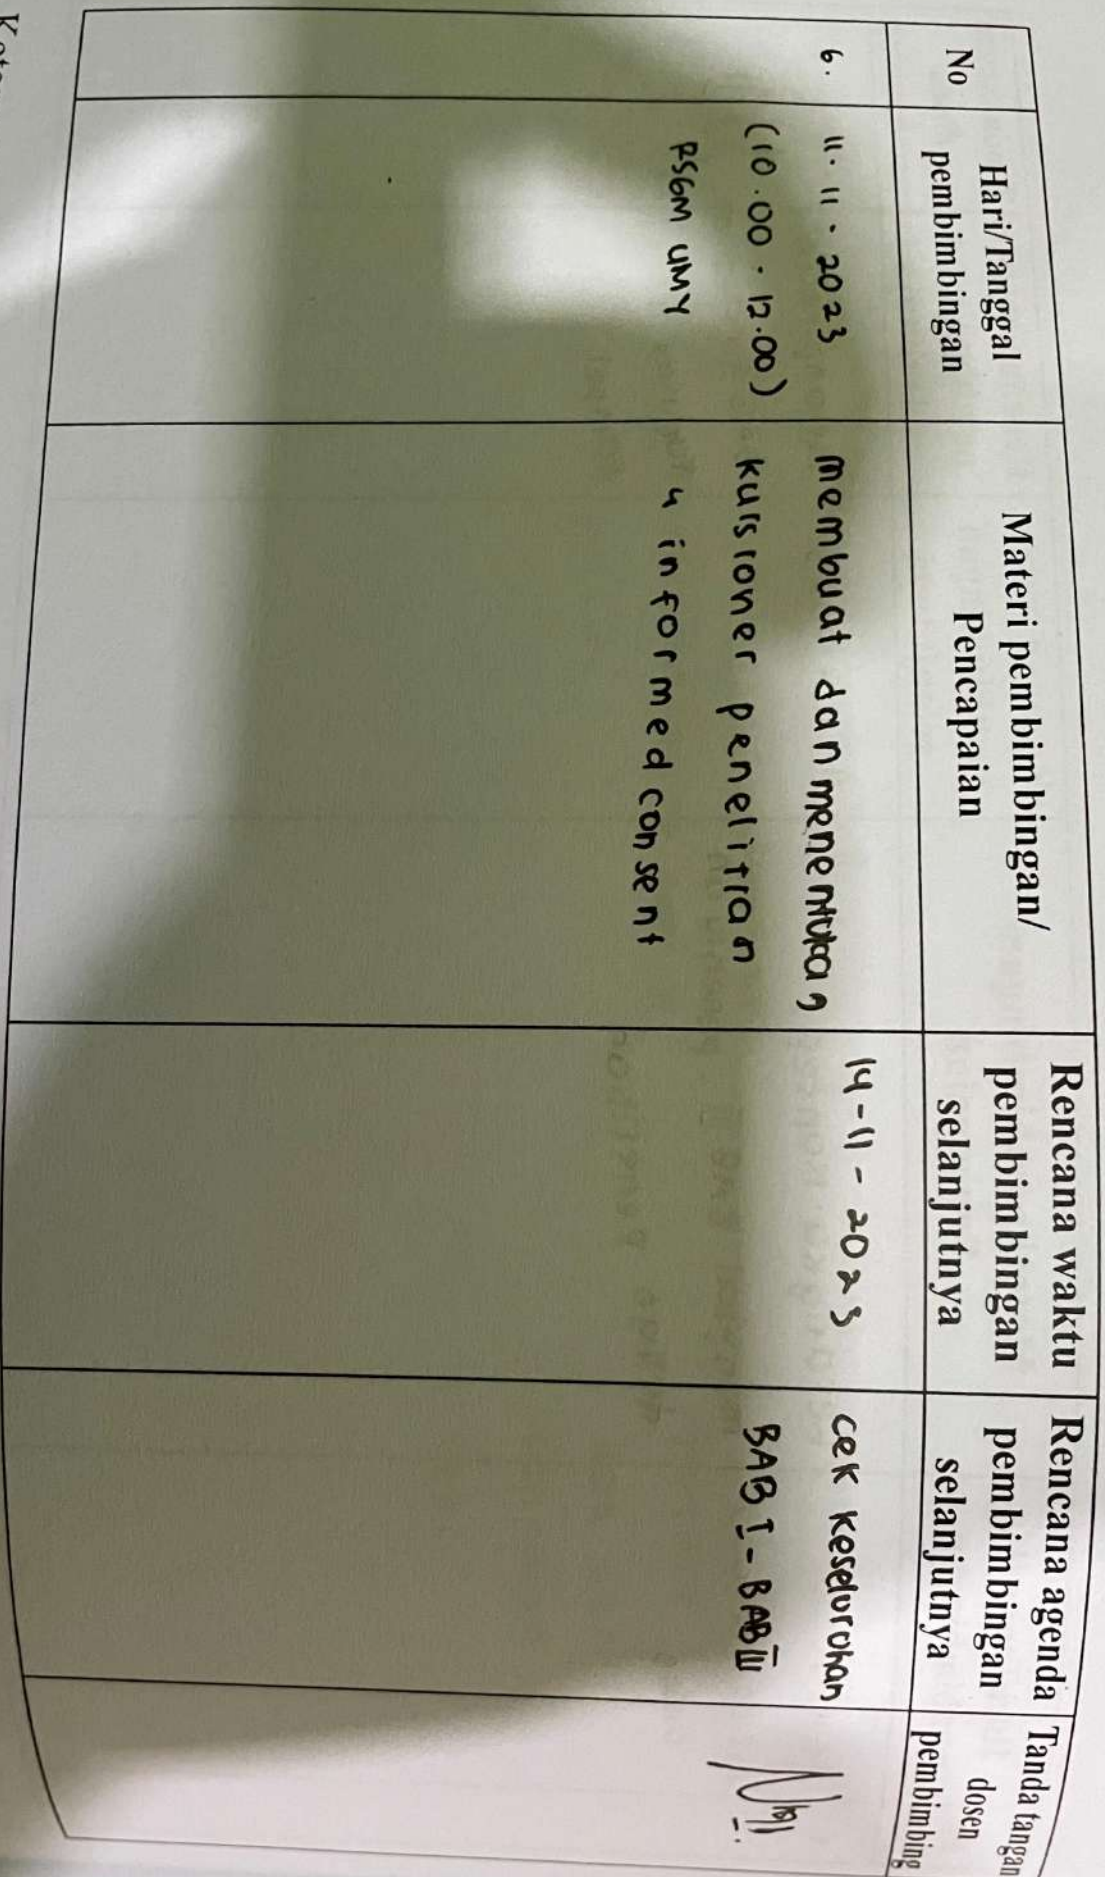 No
Hari/Tanggal
pembimbingan
Materi pembimbingan/
Pencapaian
Rencana waktu
pembimbingan
selanjutnya
Rencana agenda
pembimbingan
selanjutnya
Tanda tangan
dosen
pembimbing
6.
11. 11. 2023
(10.00 - 12.00)
RSGM UMY
membuat dan menentukan
kuisioner penelitian
informed consent
14-11-2023
cek keseluruhan
BAB I - BAB III